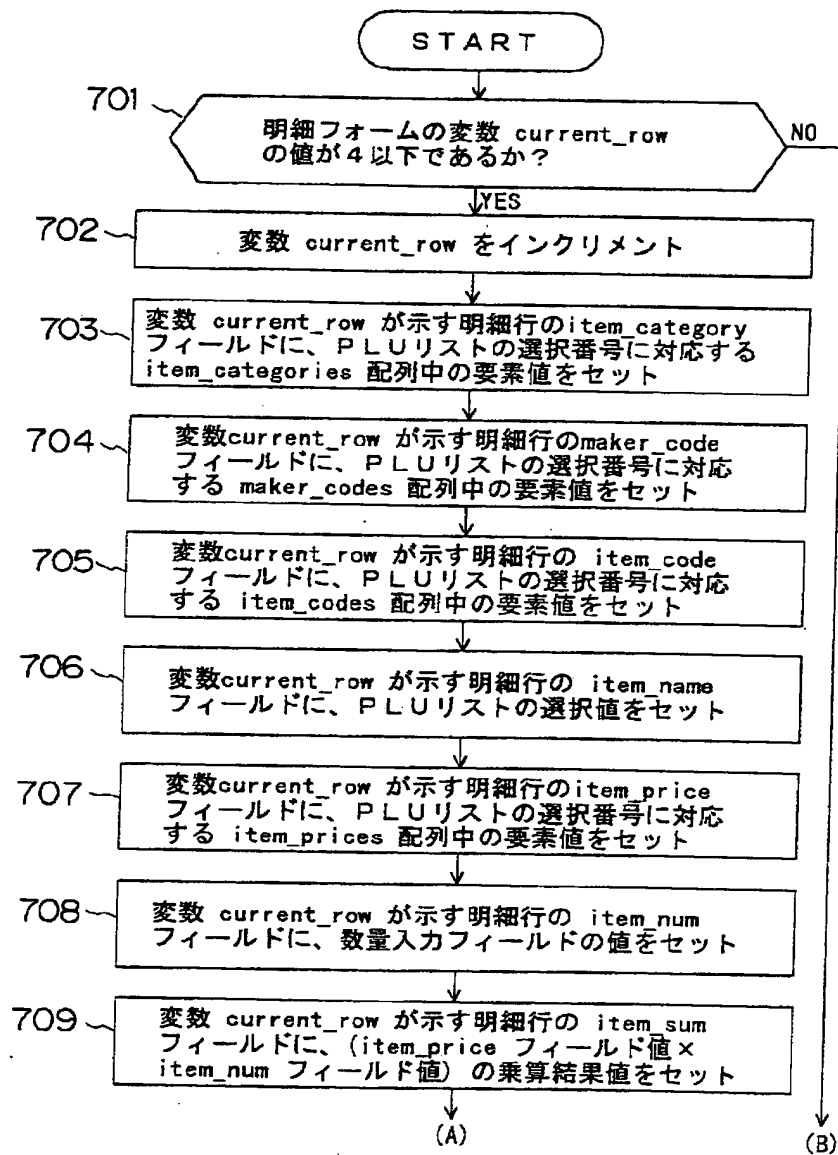 START
701
明細フォームの変数 current_row
の値が4以下であるか？
NO
YES
702
変数 current_row をインクリメント
703
変数 current_row が示す明細行のitem_category
フィールドに、ＰＬＵリストの選択番号に対応する
item_categories 配列中の要素値をセット
704
変数current_row が示す明細行のmaker_code
フィールドに、ＰＬＵリストの選択番号に対応
する maker_codes 配列中の要素値をセット
705
変数current_row が示す明細行の item_code
フィールドに、ＰＬＵリストの選択番号に対応
する item_codes 配列中の要素値をセット
706
変数current_row が示す明細行の item_name
フィールドに、ＰＬＵリストの選択値をセット
707
変数current_row が示す明細行のitem_price
フィールドに、ＰＬＵリストの選択番号に対応
する item_prices 配列中の要素値をセット
708
変数 current_row が示す明細行の item_num
フィールドに、数量入力フィールドの値をセット
709
変数 current_row が示す明細行の item_sum
フィールドに、(item_price フィールド値×
item_num フィールド値) の乗算結果値をセット
(A)
(B)